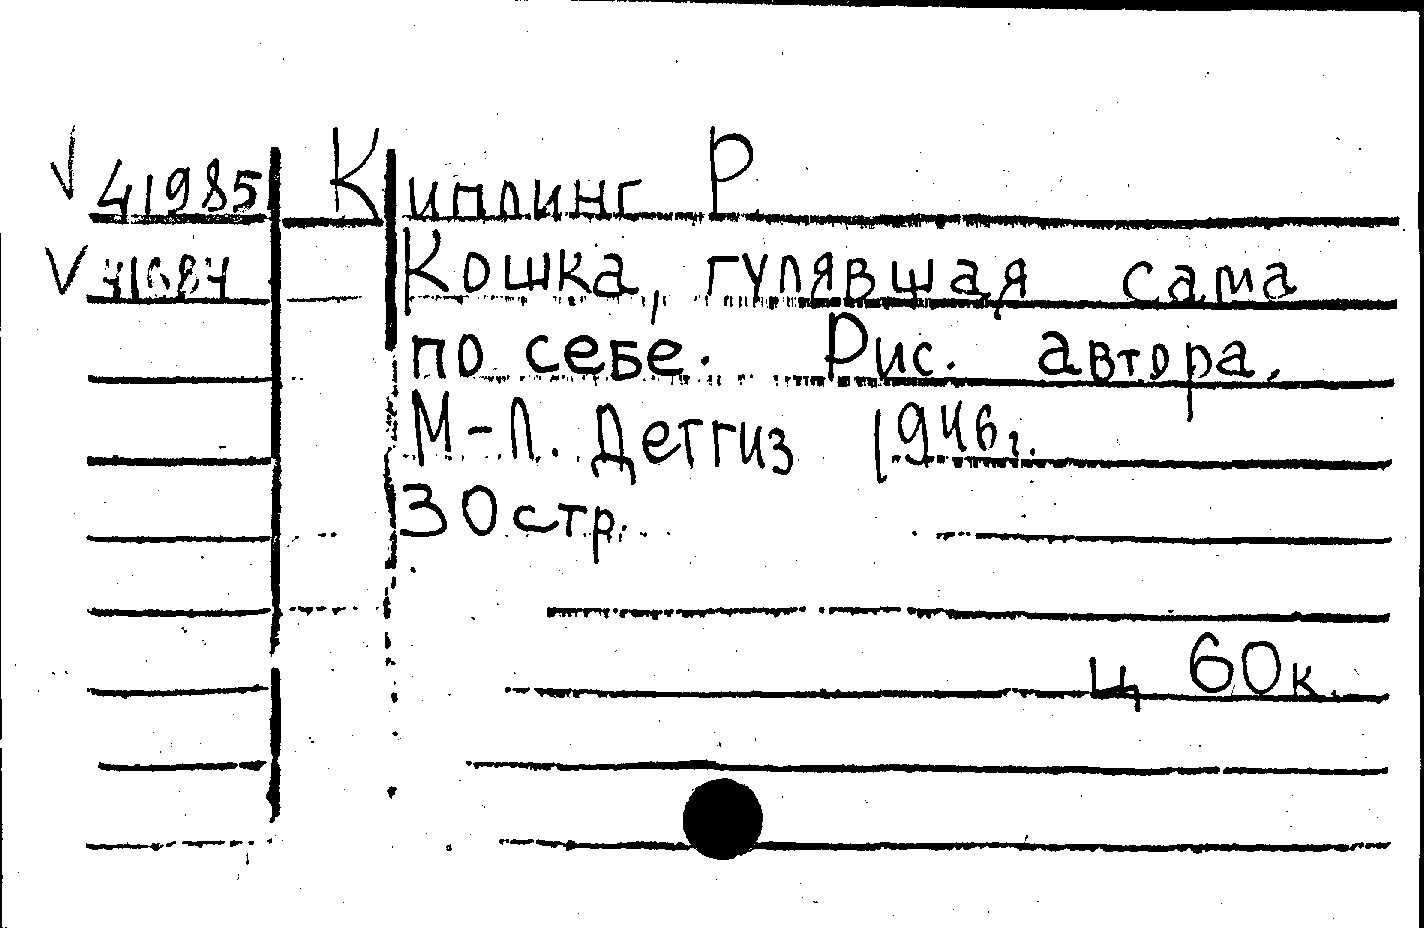 √ 41985 Киплинг Р
√ Кошка, гулявшая сама
по себе. Рис. автора.
М-Л. Детгиз 1946г.
30 стр.
ц 60к.